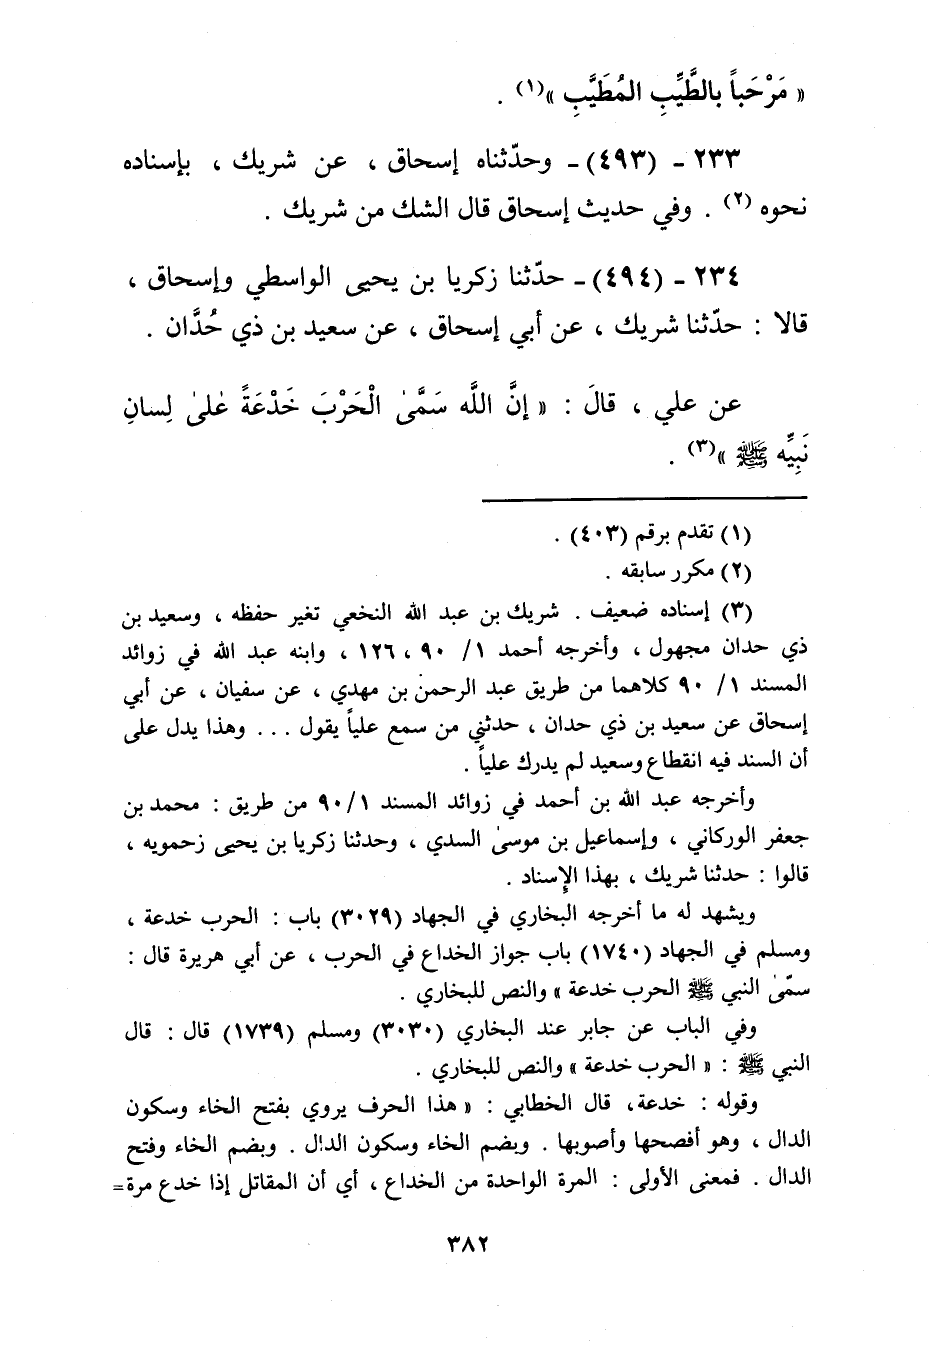 « مَرْحَباً بالطَّيِّبِ المُطَيَّبِ »(١) .
٢٣٣ ـ (٤٩٣) ـ وحدّثناه إسحاق ، عن شريك ، بإسناده
نحوه (٢) . وفي حديث إسحاق قال الشك من شريك .
٢٣٤ ـ (٤٩٤) ـ حدّثنا زكريا بن يحيى الواسطي وإسحاق ،
قالا : حدّثنا شريك ، عن أبي إسحاق ، عن سعيد بن ذي حُدَّان .
عن علي ، قالَ : « إنَّ اللَّه سَمَّىٰ الْحَرْبَ خَدْعَةً عَلىٰ لِسانِ
نَبِيِّه ﷺ »(٣) .
(١) تقدم برقم (٤٠٣) .
(٢) مكرر سابقه .
(٣) إسناده ضعيف . شريك بن عبد الله النخعي تغير حفظه ، وسعيد بن
ذي حدان مجهول ، وأخرجه أحمد ١/ ٩٠ ، ١٢٦ ، وابنه عبد الله في زوائد
المسند ١/ ٩٠ كلاهما من طريق عبد الرحمن بن مهدي ، عن سفيان ، عن أبي
إسحاق عن سعيد بن ذي حدان ، حدثني من سمع علياً يقول ... وهذا يدل على
أن السند فيه انقطاع وسعيد لم يدرك علياً .
وأخرجه عبد الله بن أحمد في زوائد المسند ١/ ٩٠ من طريق : محمد بن
جعفر الوركاني ، وإسماعيل بن موسىٰ السدي ، وحدثنا زكريا بن يحيى زحمويه ،
قالوا : حدثنا شريك ، بهذا الإسناد .
ويشهد له ما أخرجه البخاري في الجهاد (٣٠٢٩) باب : الحرب خدعة ،
ومسلم في الجهاد (١٧٤٠) باب جواز الخداع في الحرب ، عن أبي هريرة قال :
سمّىٰ النبي ﷺ الحرب خدعة » والنص للبخاري .
وفي الباب عن جابر عند البخاري (٣٠٣٠) ومسلم (١٧٣٩) قال : قال
النبي ﷺ : « الحرب خدعة » والنص للبخاري .
وقوله : خدعة، قال الخطابي : « هذا الحرف يروي بفتح الخاء وسكون
الدال ، وهو أفصحها وأصوبها . وبضم الخاء وسكون الدال . وبضم الخاء وفتح
الدال . فمعنى الأولى : المرة الواحدة من الخداع ، أي أن المقاتل إذا خدع مرة=
٣٨٢